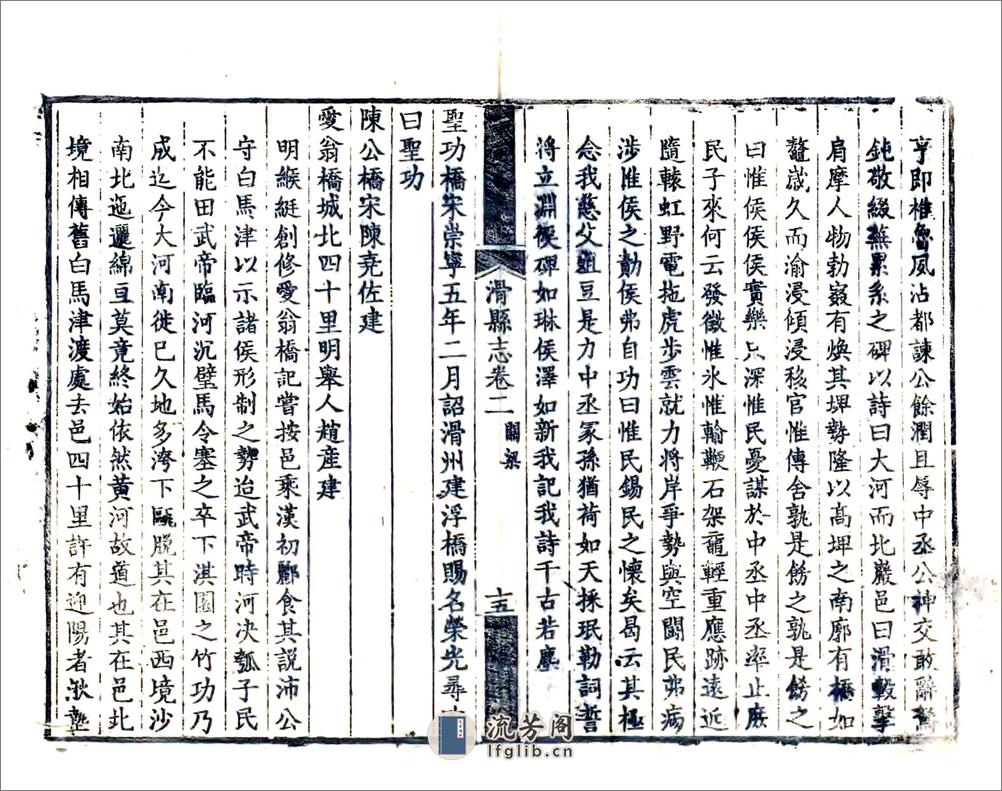 亨即椎魯夙沾都諫公餘潤且辱中丞公神交敢辭駑
鈍敬綴蕪累系之碑以詩曰大河而北巖邑曰滑轂擊
肩摩人物勃窣有煥其埤勢隆以高埤之南廓有橋如
鼇歲久而渝浸傾浸移官惟傳舍孰是餝之孰是餝之
曰惟侯侯侯實樂只深惟民憂謀於中丞中丞率止庶
民子來何云發徵惟氷惟輸鞭石架黿輕重應跡遠近
隨轅虹野電拖虎步雲就力將岸爭勢與空鬬民弗病
涉惟侯之勣侯弗自功曰惟民錫民之懷矣曷云其極
念我慈父俎豆是力中丞冢孫猶荷如天採珉勒詞誓
將立淵侯碑如琳侯澤如新我記我詩千古若塵
滑縣志卷二 關梁 十五
聖功橋宋崇寧五年二月詔滑州建浮橋賜名榮光尋
曰聖功
陳公橋宋陳堯佐建
愛翁橋城北四十里明舉人趙產建
明緱綎創修愛翁橋記嘗按邑乘漢初酈食其說沛公
守白馬津以示諸侯形制之勢迨武帝時河决瓠子民
不能田武帝臨河沉璧馬令塞之卒下淇園之竹功乃
成迄今大河南徙巳久地多洿下甌脫其在邑西境沙
南北迤邐綿亘莫竟終始依然黃河故道也其在邑北
境相傳舊白馬津渡處去邑四十里許有迎陽者
流芳阁
lfglib.cn